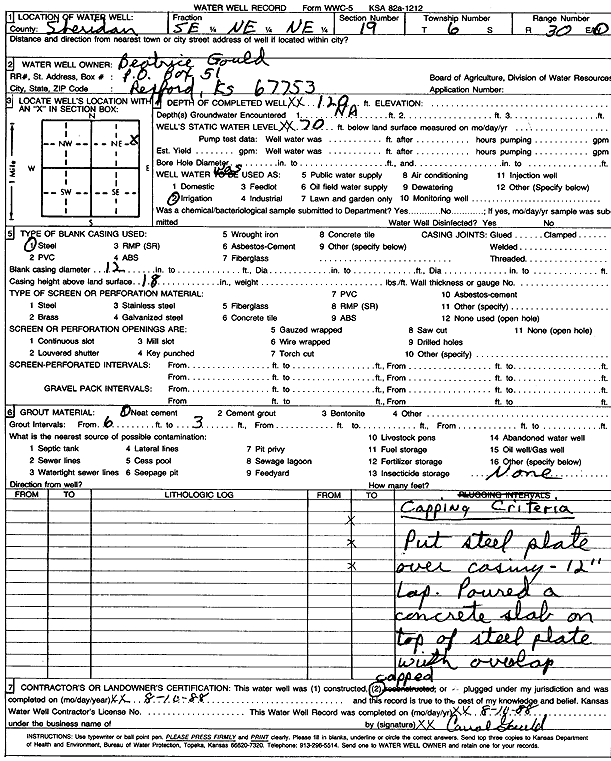 WATER WELL RECORD Form WWC-5 KSA 82a-1212
1 LOCATION OF WATER WELL: Fraction Section Number Township Number Range Number
County: Sheridan SE ¼ NE ¼ NE ¼ 19 T 6 S R 30 E/W
Distance and direction from nearest town or city street address of well if located within city?
2 WATER WELL OWNER: Beatrice Gould
RR#, St. Address, Box # : P.O. Box 51 Board of Agriculture, Division of Water Resources
City, State, ZIP Code : Rexford, Ks 67753 Application Number:
3 LOCATE WELL'S LOCATION WITH AN "X" IN SECTION BOX:
N
NW NE X
W E
SW SE
S
1 Mile
4 DEPTH OF COMPLETED WELL XX 120 ft. ELEVATION:
Depth(s) Groundwater Encountered 1. NA ft. 2. ft. 3. ft.
WELL'S STATIC WATER LEVEL XX 70 ft. below land surface measured on mo/day/yr
Pump test data: Well water was ft. after hours pumping gpm
Est. Yield gpm: Well water was ft. after hours pumping gpm
Bore Hole Diameter in. to ft., and in. to ft.
WELL WATER TO BE USED AS: was 5 Public water supply 8 Air conditioning 11 Injection well
1 Domestic 3 Feedlot 6 Oil field water supply 9 Dewatering 12 Other (Specify below)
2 Irrigation 4 Industrial 7 Lawn and garden only 10 Monitoring well
Was a chemical/bacteriological sample submitted to Department? Yes No ; If yes, mo/day/yr sample was sub
mitted Water Well Disinfected? Yes No
5 TYPE OF BLANK CASING USED: 5 Wrought iron 8 Concrete tile CASING JOINTS: Glued Clamped
1 Steel 3 RMP (SR) 6 Asbestos-Cement 9 Other (specify below) Welded
2 PVC 4 ABS 7 Fiberglass Threaded
Blank casing diameter 12 in. to ft., Dia in. to ft., Dia in. to ft.
Casing height above land surface 18 in., weight lbs./ft. Wall thickness or gauge No.
TYPE OF SCREEN OR PERFORATION MATERIAL: 7 PVC 10 Asbestos-cement
1 Steel 3 Stainless steel 5 Fiberglass 8 RMP (SR) 11 Other (specify)
2 Brass 4 Galvanized steel 6 Concrete tile 9 ABS 12 None used (open hole)
SCREEN OR PERFORATION OPENINGS ARE: 5 Gauzed wrapped 8 Saw cut 11 None (open hole)
1 Continuous slot 3 Mill slot 6 Wire wrapped 9 Drilled holes
2 Louvered shutter 4 Key punched 7 Torch cut 10 Other (specify)
SCREEN-PERFORATED INTERVALS: From ft. to ft., From ft. to ft.
From ft. to ft., From ft. to ft.
GRAVEL PACK INTERVALS: From ft. to ft., From ft. to ft.
From ft. to ft., From ft. to ft.
6 GROUT MATERIAL: 1 Neat cement 2 Cement grout 3 Bentonite 4 Other
Grout Intervals: From 6 ft. to 3 ft., From ft. to ft., From ft. to ft.
What is the nearest source of possible contamination: 10 Livestock pens 14 Abandoned water well
1 Septic tank 4 Lateral lines 7 Pit privy 11 Fuel storage 15 Oil well/Gas well
2 Sewer lines 5 Cess pool 8 Sewage lagoon 12 Fertilizer storage 16 Other (specify below)
3 Watertight sewer lines 6 Seepage pit 9 Feedyard 13 Insecticide storage None
Direction from well? How many feet?
FROM TO LITHOLOGIC LOG FROM TO PLUGGING INTERVALS
Capping Criteria
X
X Put steel plate
X over casing - 12"
Lap. Poured a
concrete slab on
top of steel plate
with overlap
capped
7 CONTRACTOR'S OR LANDOWNER'S CERTIFICATION: This water well was (1) constructed, (2) reconstructed, or plugged under my jurisdiction and was
completed on (mo/day/year) XX 8-10-88 and this record is true to the best of my knowledge and belief. Kansas
Water Well Contractor's License No. This Water Well Record was completed on (mo/day/yr) XX 8-10-88
under the business name of by (signature) XX
INSTRUCTIONS: Use typewriter or ball point pen. PLEASE PRESS FIRMLY and PRINT clearly. Please fill in blanks, underline or circle the correct answers. Send top three copies to Kansas Department
of Health and Environment, Bureau of Water Protection, Topeka, Kansas 66620-7320. Telephone: 913-296-5514. Send one to WATER WELL OWNER and retain one for your records.